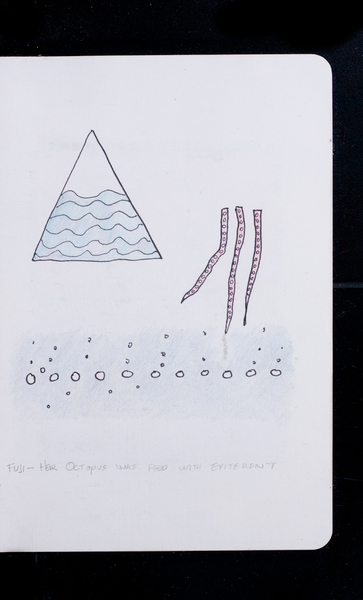 FUJI - HER OCTOPUS WAS FIED WITH EXITEMENT